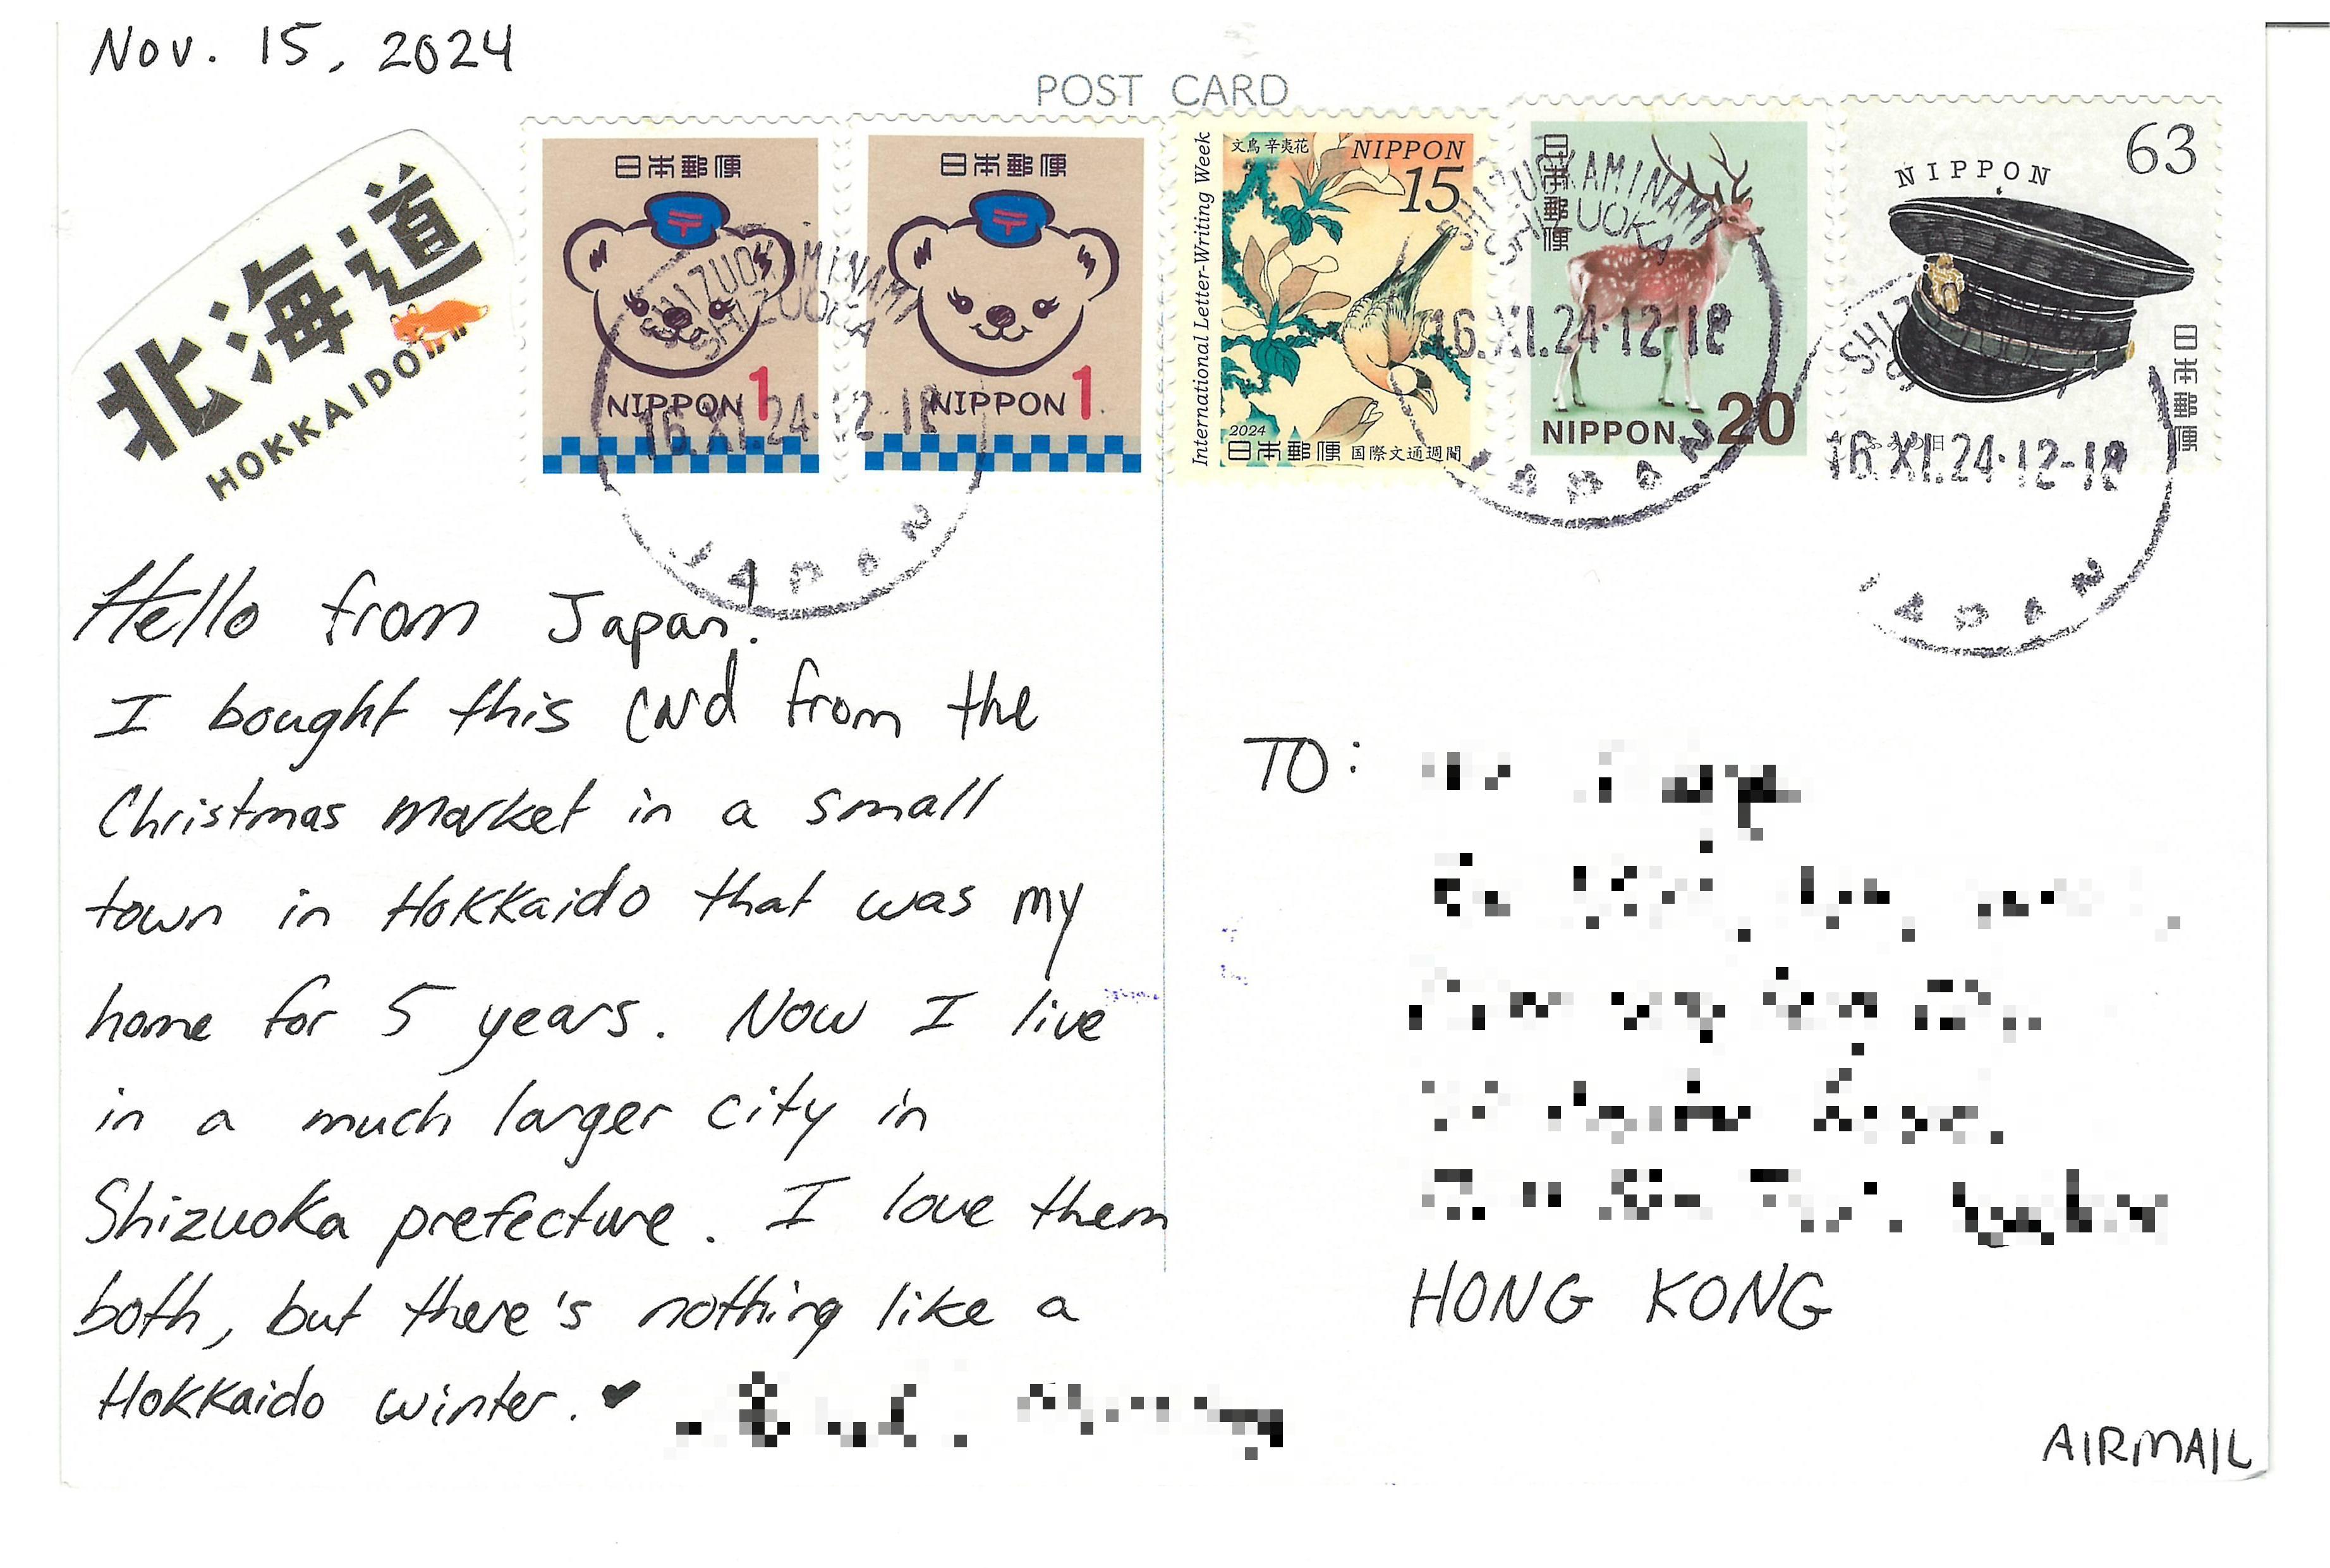 Nov. 15, 2024
POST CARD
北海道
HOKKAIDO
日本郵便
NIPPON 1
日本郵便
NIPPON 1
International Letter-Writing Week
文鳥 辛夷花
NIPPON
15
2024
日本郵便 国際文通週間
日本郵便
NIPPON 20
63
NIPPON
日本郵便
SHIZUOKAMINAMI
SHIZUOKA
16.XI.24·12-18
JAPAN
SHIZUOKAMINAMI
SHIZUOKA
16.XI.24·12-18
JAPAN
16.XI.24·12-18
JAPAN
Hello from Japan!
I bought this card from the
Christmas market in a small
town in Hokkaido that was my
home for 5 years. Now I live
in a much larger city in
Shizuoka prefecture. I love them
both, but there's nothing like a
Hokkaido winter. ♥
TO:
HONG KONG
AIRMAIL